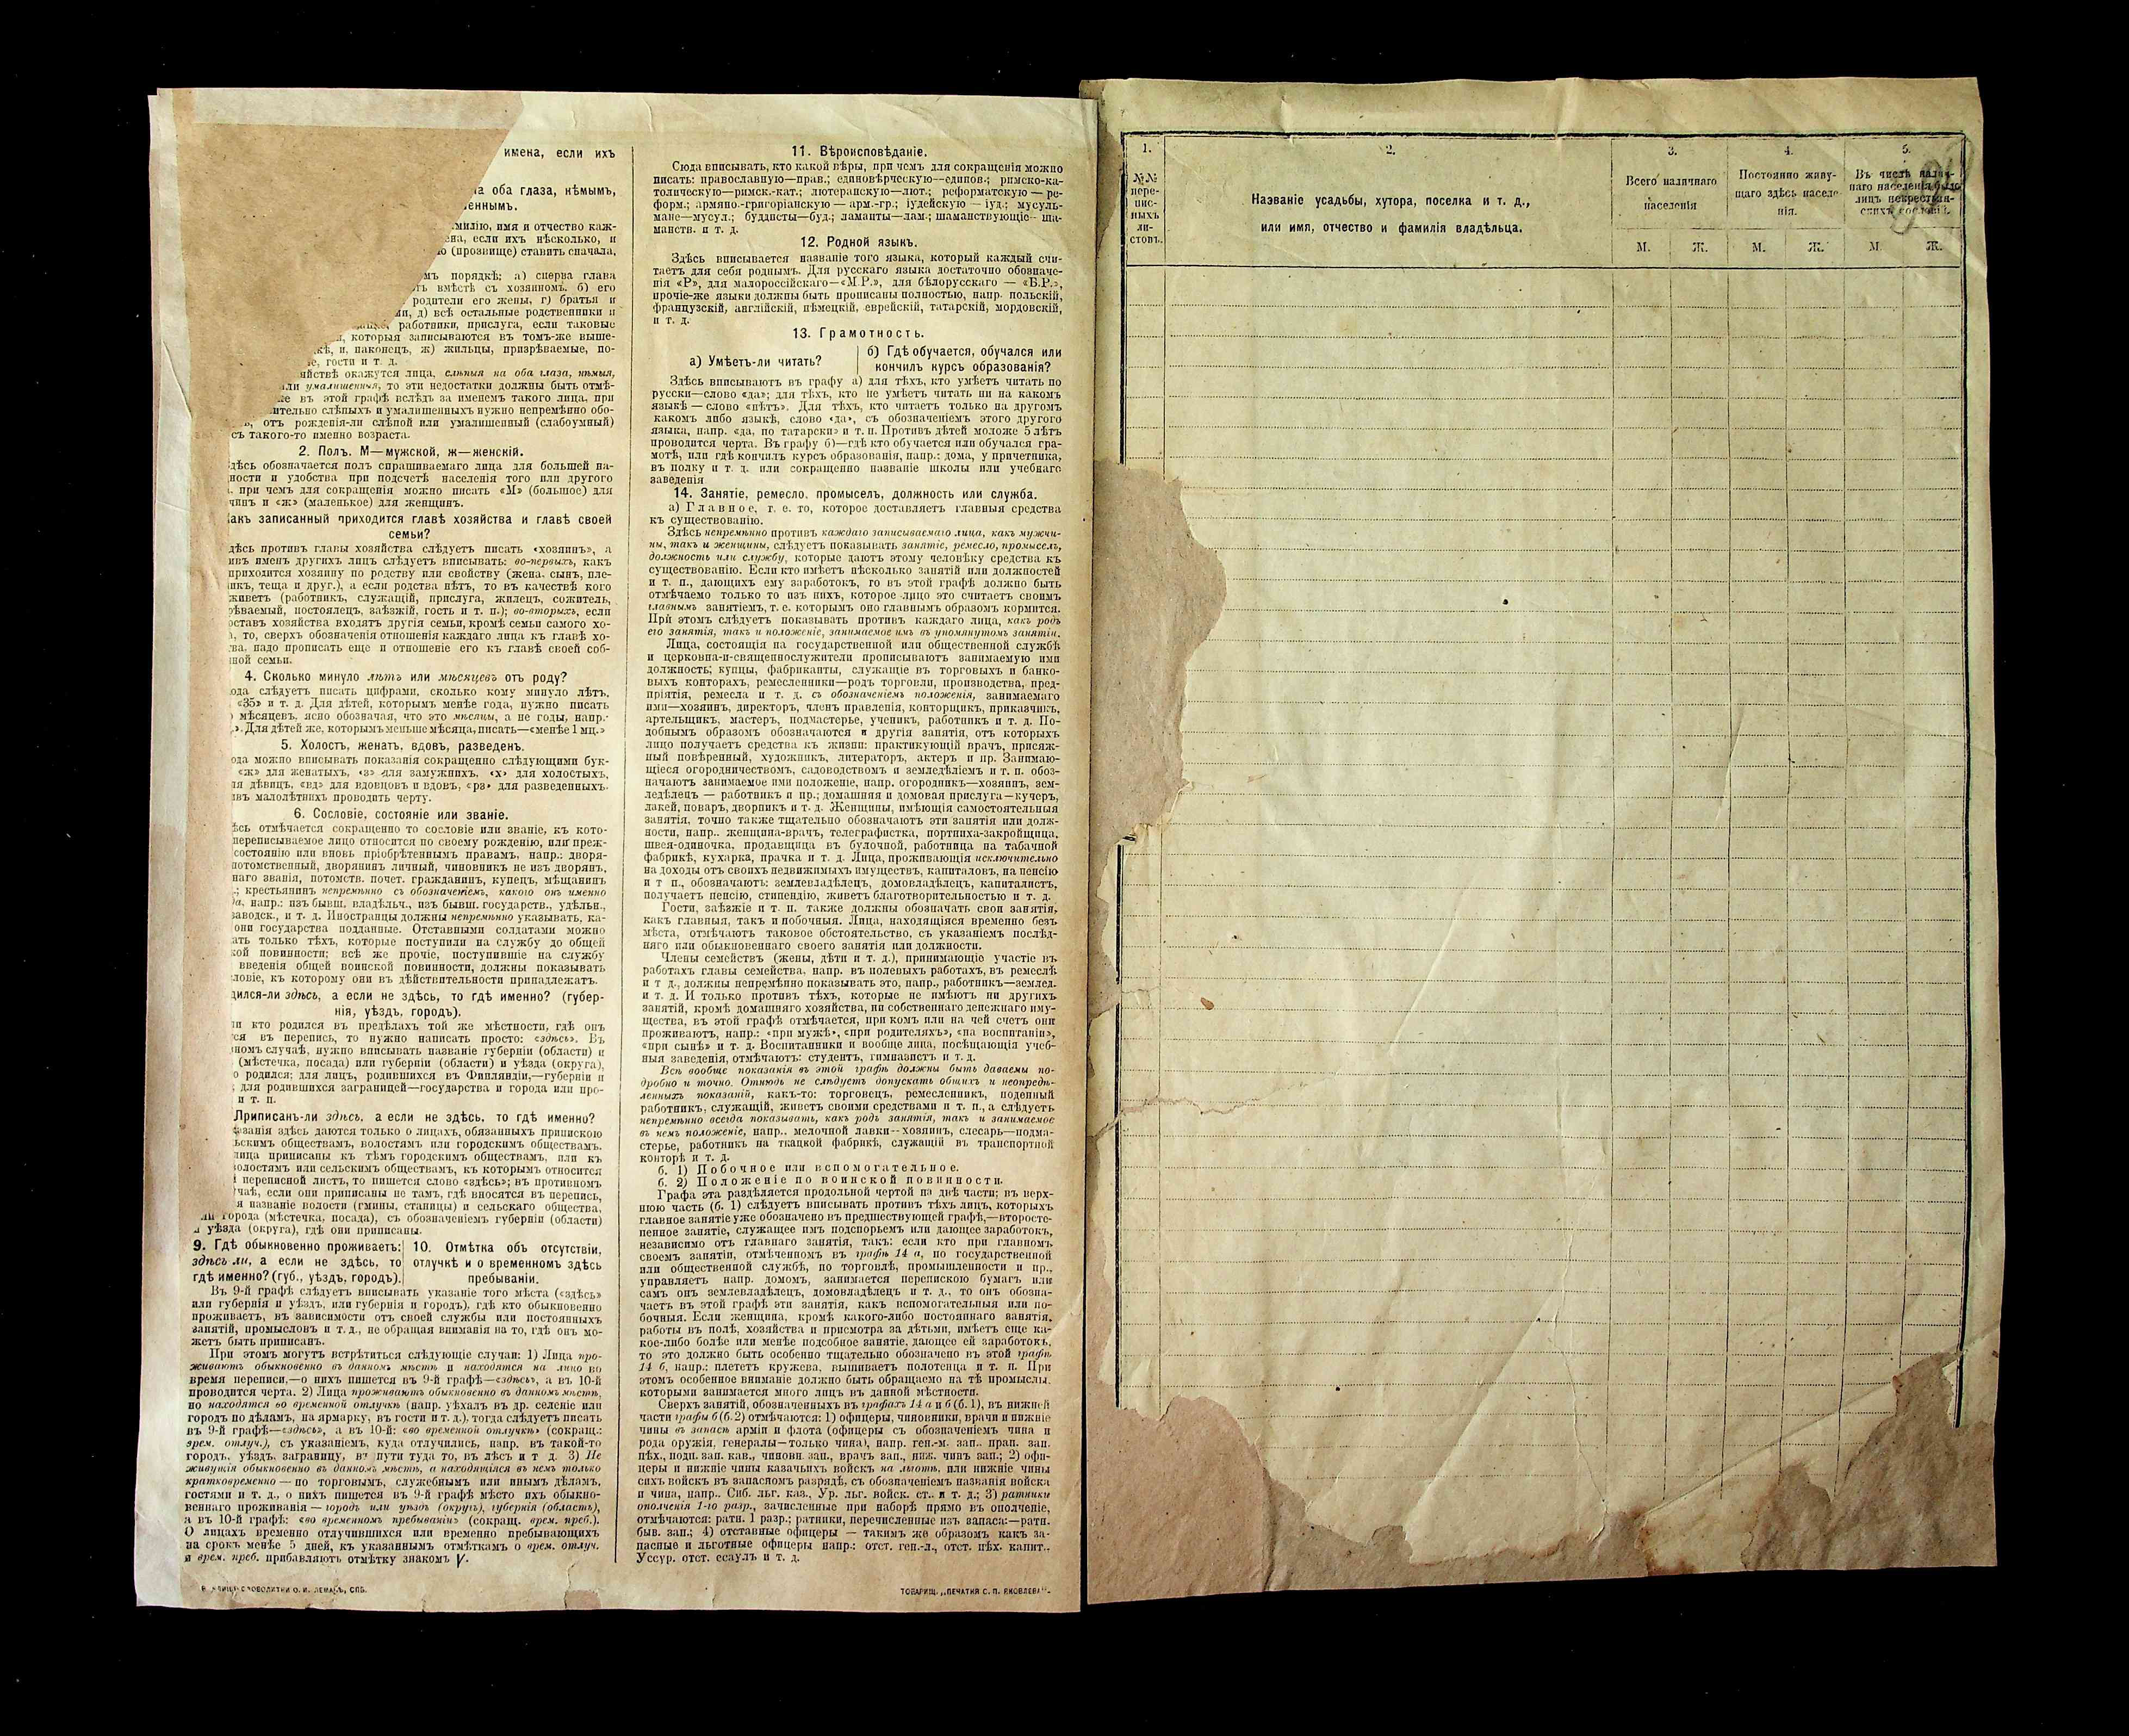 имена, если ихъ
на оба глаза, нѣмымъ,
шеннымъ.
милію, имя и отчество каж-
ена, если ихъ нѣсколько, и
ю (прозвище) ставить сначала,
мъ порядкѣ: а) сперва глава
ть вмѣстѣ съ хозяиномъ. б) его
родители его жены, г) братья и
ми, д) всѣ остальные родственники и
работники, прислуга, если таковые
и, которыя записываются въ томъ-же выше-
кѣ, и, наконецъ, ж) жильцы, призрѣваемые, по-
е, гости и т. д.
яйствѣ окажутся лица, слѣпыя на оба глаза, нѣмыя,
или умалишенныя, то эти недостатки должны быть отмѣ-
же въ этой графѣ вслѣдъ за именемъ такого лица, при
ительно слѣпыхъ и умалишенныхъ нужно непремѣнно обо-
ь, отъ рожденія-ли слѣпой или умалишенный (слабоумный)
съ такого-то именно возраста.
2. Полъ. М—мужской, ж—женскій.
дѣсь обозначается полъ спрашиваемаго лица для большей на-
ности и удобства при подсчетѣ населенія того или другого
, при чемъ для сокращенія можно писать «М» (большое) для
чинъ и «ж» (маленькое) для женщинъ.
Какъ записанный приходится главѣ хозяйства и главѣ своей
семьи?
дѣсь противъ главы хозяйства слѣдуетъ писать «хозяинъ», а
ивъ именъ другихъ лицъ слѣдуетъ вписывать: во-первыхъ, какъ
приходится хозяину по родству или свойству (жена, сынъ, пле-
икъ, теща и друг.), а если родства нѣтъ, то въ качествѣ кого
живетъ (работникъ, служащій, прислуга, жилецъ, сожитель,
ѣваемый, постоялецъ, заѣзжій, гость и т. п.); во-вторыхъ, если
оставъ хозяйства входятъ другія семьи, кромѣ семьи самого хо-
а, то, сверхъ обозначенія отношенія каждаго лица къ главѣ хо-
ва, надо прописать еще и отношеніе его къ главѣ своей соб-
ной семьи.
4. Сколько минуло лѣтъ или мѣсяцевъ отъ роду?
юда слѣдуетъ писать цифрами, сколько кому минуло лѣтъ,
«35» и т. д. Для дѣтей, которымъ менѣе года, нужно писать
мѣсяцевъ, ясно обозначая, что это мѣсяцы, а не годы, напр.-
.». Для дѣтей же, которымъ меньше мѣсяца, писать—«менѣе 1 мц.»
5. Холостъ, женатъ, вдовъ, разведенъ.
юда можно вписывать показанія сокращенно слѣдующими бук-
«ж» для женатыхъ, «з» для замужнихъ, «х» для холостыхъ,
ля дѣвицъ, «вд» для вдовцовъ и вдовъ, «рз» для разведенныхъ.
ивъ малолѣтнихъ проводить черту.
6. Сословіе, состояніе или званіе.
ѣсь отмѣчается сокращенно то сословіе или званіе, къ кото-
переписываемое лицо относится по своему рожденію, или преж-
состоянію или вновь пріобрѣтеннымъ правамъ, напр.: дворя-
потомственный, дворянинъ личный, чиновникъ не изъ дворянъ,
наго званія, потомств. почет. гражданинъ, купецъ, мѣщанинъ
.; крестьянинъ непремѣнно съ обозначеніемъ, какого онъ именно
а, напр.: изъ бывш. владѣльч., изъ бывш. государств., удѣльн.,
заводск., и т. д. Иностранцы должны непремѣнно указывать, ка-
они государства подданные. Отставными солдатами можно
ать только тѣхъ, которые поступили на службу до общей
кой повинности; всѣ же прочіе, поступившіе на службу
введенія общей воинской повинности, должны показывать
ловіе, къ которому они въ дѣйствительности принадлежатъ.
дился-ли здѣсь, а если не здѣсь, то гдѣ именно? (губер-
нія, уѣздъ, городъ).
ли кто родился въ предѣлахъ той же мѣстности, гдѣ онъ
ся въ перепись, то нужно написать просто: «здѣсь». Въ
номъ случаѣ, нужно вписывать названіе губерніи (области) и
(мѣстечка, посада) или губерніи (области) и уѣзда (округа),
о родился; для лицъ, родившихся въ Финляндіи,—губерніи и
; для родившихся заграницей—государства и города или про-
и т. п.
Приписанъ-ли здѣсь, а если не здѣсь, то гдѣ именно?
азанія здѣсь даются только о лицахъ, обязанныхъ припискою
ьскимъ обществамъ, волостямъ или городскимъ обществамъ.
лица приписаны къ тѣмъ городскимъ обществамъ, или къ
олостямъ или сельскимъ обществамъ, къ которымъ относится
переписной листъ, то пишется слово «здѣсь»; въ противномъ
чаѣ, если они приписаны не тамъ, гдѣ вносятся въ перепись,
я названіе волости (гмины, станицы) и сельскаго общества,
ли города (мѣстечка, посада), съ обозначеніемъ губерніи (области)
и уѣзда (округа), гдѣ они приписаны.
9. Гдѣ обыкновенно проживаетъ:
здѣсь ли, а если не здѣсь, то
гдѣ именно? (губ., уѣздъ, городъ).
10. Отмѣтка объ отсутствіи,
отлучкѣ и о временномъ здѣсь
пребываніи.
Въ 9-й графѣ слѣдуетъ вписывать указаніе того мѣста («здѣсь»
или губернія и уѣздъ, или губернія и городъ), гдѣ кто обыкновенно
проживаетъ, въ зависимости отъ своей службы или постоянныхъ
занятій, промысловъ и т. д., не обращая вниманія на то, гдѣ онъ мо-
жетъ быть приписанъ.
При этомъ могутъ встрѣтиться слѣдующіе случаи: 1) Лица про-
живаютъ обыкновенно въ данномъ мѣстѣ и находятся на лицо во
время переписи,—о нихъ пишется въ 9-й графѣ—«здѣсь», а въ 10-й
проводится черта. 2) Лица проживаютъ обыкновенно въ данномъ мѣстѣ,
но находятся во временной отлучкѣ (напр. уѣхалъ въ др. селеніе или
городъ по дѣламъ, на ярмарку, въ гости и т. д.), тогда слѣдуетъ писать
въ 9-й графѣ—«здѣсь», а въ 10-й: «во временной отлучкѣ» (сокращ.:
врем. отлуч.), съ указаніемъ, куда отлучились, напр. въ такой-то
городъ, уѣздъ, заграницу, въ пути туда то, въ лѣсъ и т д. 3) Не
живущія обыкновенно въ данномъ мѣстѣ, а находящіяся въ немъ только
кратковременно — по торговымъ, служебнымъ или инымъ дѣламъ,
гостями и т. д., о нихъ пишется въ 9-й графѣ мѣсто ихъ обыкно-
веннаго проживанія — городъ или уѣздъ (округъ), губернія (область),
а въ 10-й графѣ: «во временномъ пребываніи» (сокращ. врем. преб.).
О лицахъ временно отлучившихся или временно пребывающихъ
на срокъ менѣе 5 дней, къ указаннымъ отмѣткамъ о врем. отлуч.
и врем. преб. прибавляютъ отмѣтку знакомъ V.
СЛОВОЛИТНИ О. И. ЛЕМАНЪ, СПБ.
11. Вѣроисповѣданіе.
Сюда вписывать, кто какой вѣры, при чемъ для сокращенія можно
писать: православную—прав.; единовѣрческую—единов.; римско-ка-
толическую—римск.-кат.; лютеранскую—лют.; реформатскую — ре-
форм.; армяно-григоріанскую — арм.-гр.; іудейскую — іуд.; мусуль-
мане—мусул.; буддисты—буд.; ламаиты—лам.; шаманствующіе—ша-
манств. и т. д.
12. Родной языкъ.
Здѣсь вписывается названіе того языка, который каждый счи-
таетъ для себя роднымъ. Для русскаго языка достаточно обозначе-
нія «Р», для малороссійскаго—«М.Р.», для бѣлорусскаго — «Б.Р.»,
прочіе-же языки должны быть прописаны полностью, напр. польскій,
французскій, англійскій, нѣмецкій, еврейскій, татарскій, мордовскій,
и т. д.
13. Грамотность.
а) Умѣетъ-ли читать?
б) Гдѣ обучается, обучался или
кончилъ курсъ образованія?
Здѣсь вписываютъ въ графу а) для тѣхъ, кто умѣетъ читать по
русски—слово «да»; для тѣхъ, кто не умѣетъ читать ни на какомъ
языкѣ — слово «нѣтъ». Для тѣхъ, кто читаетъ только на другомъ
какомъ либо языкѣ, слово «да», съ обозначеніемъ этого другого
языка, напр. «да, по татарски» и т. п. Противъ дѣтей моложе 5 лѣтъ
проводится черта. Въ графу б)—гдѣ кто обучается или обучался гра-
мотѣ, или гдѣ кончилъ курсъ образованія, напр.: дома, у причетника,
въ полку и т. д. или сокращенно названіе школы или учебнаго
заведенія
14. Занятіе, ремесло, промыселъ, должность или служба.
а) Главное, т. е. то, которое доставляетъ главныя средства
къ существованію.
Здѣсь непремѣнно противъ каждаго записываемаго лица, какъ мужчи-
ны, такъ и женщины, слѣдуетъ показывать занятіе, ремесло, промыселъ,
должность или службу, которые даютъ этому человѣку средства къ
существованію. Если кто имѣетъ нѣсколько занятій или должностей
и т. п., дающихъ ему заработокъ, то въ этой графѣ должно быть
отмѣчаемо только то изъ нихъ, которое лицо это считаетъ своимъ
главнымъ занятіемъ, т. е. которымъ оно главнымъ образомъ кормится.
При этомъ слѣдуетъ показывать противъ каждаго лица, какъ родъ
его занятія, такъ и положеніе, занимаемое имъ въ упомянутомъ занятіи.
Лица, состоящія на государственной или общественной службѣ
и церковно-и-священнослужители прописываютъ занимаемую ими
должность; купцы, фабриканты, служащіе въ торговыхъ и банко-
выхъ конторахъ, ремесленники—родъ торговли, производства, пред-
пріятія, ремесла и т. д. съ обозначеніемъ положенія, занимаемаго
ими—хозяинъ, директоръ, членъ правленія, конторщикъ, приказчикъ,
артельщикъ, мастеръ, подмастерье, ученикъ, работникъ и т. д. По-
добнымъ образомъ обозначаются и другія занятія, отъ которыхъ
лицо получаетъ средства къ жизни: практикующій врачъ, присяж-
ный повѣренный, художникъ, литераторъ, актеръ и пр. Занимаю-
щіеся огородничествомъ, садоводствомъ и земледѣліемъ и т. п. обоз-
начаютъ занимаемое ими положеніе, напр. огородникъ—хозяинъ, зем-
ледѣлецъ — работникъ и пр.; домашняя и домовая прислуга—кучеръ,
лакей, поваръ, дворникъ и т. д. Женщины, имѣющія самостоятельныя
занятія, точно также тщательно обозначаютъ эти занятія или долж-
ности, напр.. женщина-врачъ, телеграфистка, портниха-закройщица,
швея-одиночка, продавщица въ булочной, работница на табачной
фабрикѣ, кухарка, прачка и т. д. Лица, проживающія исключительно
на доходы отъ своихъ недвижимыхъ имуществъ, капиталовъ, на пенсію
и т п., обозначаютъ: землевладѣлецъ, домовладѣлецъ, капиталистъ,
получаетъ пенсію, стипендію, живетъ благотворительностью и т. д.
Гости, заѣзжіе и т. п. также должны обозначать свои занятія,
какъ главныя, такъ и побочныя. Лица, находящіяся временно безъ
мѣста, отмѣчаютъ таковое обстоятельство, съ указаніемъ послѣд-
няго или обыкновеннаго своего занятія или должности.
Члены семействъ (жены, дѣти и т. д.), принимающіе участіе въ
работахъ главы семейства, напр. въ полевыхъ работахъ, въ ремеслѣ
и т д., должны непремѣнно показывать это, напр., работникъ—землед.
и т. д. И только противъ тѣхъ, которые не имѣютъ ни другихъ
занятій, кромѣ домашняго хозяйства, ни собственнаго денежнаго иму-
щества, въ этой графѣ отмѣчается, при комъ или на чей счетъ они
проживаютъ, напр.: «при мужѣ», «при родителяхъ», «на воспитаніи»,
«при сынѣ» и т. д. Воспитанники и вообще лица, посѣщающія учеб-
ныя заведенія, отмѣчаютъ: студентъ, гимназистъ и т. д.
Всѣ вообще показанія въ этой графѣ должны быть даваемы по-
дробно и точно. Отнюдь не слѣдуетъ допускать общихъ и неопредѣ-
ленныхъ показаній, какъ-то: торговецъ, ремесленникъ, поденный
работникъ, служащій, живетъ своими средствами и т. п., а слѣдуетъ
непремѣнно всегда показывать, какъ родъ занятія, такъ и занимаемое
въ немъ положеніе, напр.. мелочной лавки--хозяинъ, слесарь—подма-
стерье, работникъ на ткацкой фабрикѣ, служащій въ транспортной
конторѣ и т. д.
б. 1) Побочное или вспомогательное.
б. 2) Положеніе по воинской повинности.
Графа эта раздѣляется продольной чертой на двѣ части; въ верх-
нюю часть (б. 1) слѣдуетъ вписывать противъ тѣхъ лицъ, которыхъ
главное занятіе уже обозначено въ предшествующей графѣ,—второсте-
пенное занятіе, служащее имъ подспорьемъ или дающее заработокъ,
независимо отъ главнаго занятія, такъ: если кто при главномъ
своемъ занятіи, отмѣченномъ въ графѣ 14 а, по государственной
или общественной службѣ, по торговлѣ, промышленности и пр.,
управляетъ напр. домомъ, занимается перепискою бумагъ или
самъ онъ землевладѣлецъ, домовладѣлецъ и т. д., то онъ обозна-
чаетъ въ этой графѣ эти занятія, какъ вспомогательныя или по-
бочныя. Если женщина, кромѣ какого-либо постояннаго занятія,
работы въ полѣ, хозяйства и присмотра за дѣтьми, имѣетъ еще ка-
кое-либо болѣе или менѣе подсобное занятіе, дающее ей заработокъ,
то это должно быть особенно тщательно обозначено въ этой графѣ
14 б, напр.: плететъ кружева, вышиваетъ полотенца и т. п. При
этомъ особенное вниманіе должно быть обращаемо на тѣ промыслы,
которыми занимается много лицъ въ данной мѣстности.
Сверхъ занятій, обозначенныхъ въ графахъ 14 а и б (б. 1), въ нижней
части графы б (б. 2) отмѣчаются: 1) офицеры, чиновники, врачи и нижніе
чины въ запасѣ арміи и флота (офицеры съ обозначеніемъ чина и
рода оружія, генералы—только чина), напр. ген.-м. зап.. прап. зап.
пѣх., подп. зап. кав., чиновн. зап., врачъ зап., ниж. чинъ зап.; 2) офи-
церы и нижніе чины казачьихъ войскъ на льготѣ, или нижніе чины
сихъ войскъ въ запасномъ разрядѣ, съ обозначеніемъ названія войска
и чина, напр.. Сиб. льг. каз., Ур. льг. войск. ст.. и т. д.; 3) ратники
ополченія 1-го разр., зачисленные при наборѣ прямо въ ополченіе,
отмѣчаются: ратн. 1 разр.; ратники, перечисленные изъ запаса:—ратн.
быв. зап.; 4) отставные офицеры — такимъ же образомъ какъ за-
пасные и льготные офицеры напр.: отст. ген.-л., отст. пѣх. капит..
Уссур. отст. есаулъ и т. д.
ТОВАРИЩ. „ПЕЧАТНЯ С. П. ЯКОВЛЕВА“-
1.
№№
пере-
пис-
ныхъ
ли-
стовъ.
2.
Названіе усадьбы, хутора, поселка и т. д.,
или имя, отчество и фамилія владѣльца.
3.
Всего наличнаго
населенія
М. Ж.
4.
Постоянно живу-
щаго здѣсь населе-
нія.
М. Ж.
5.
Въ числѣ налич-
наго населенія было
лицъ некрестьян-
скихъ сословій.
М. Ж.